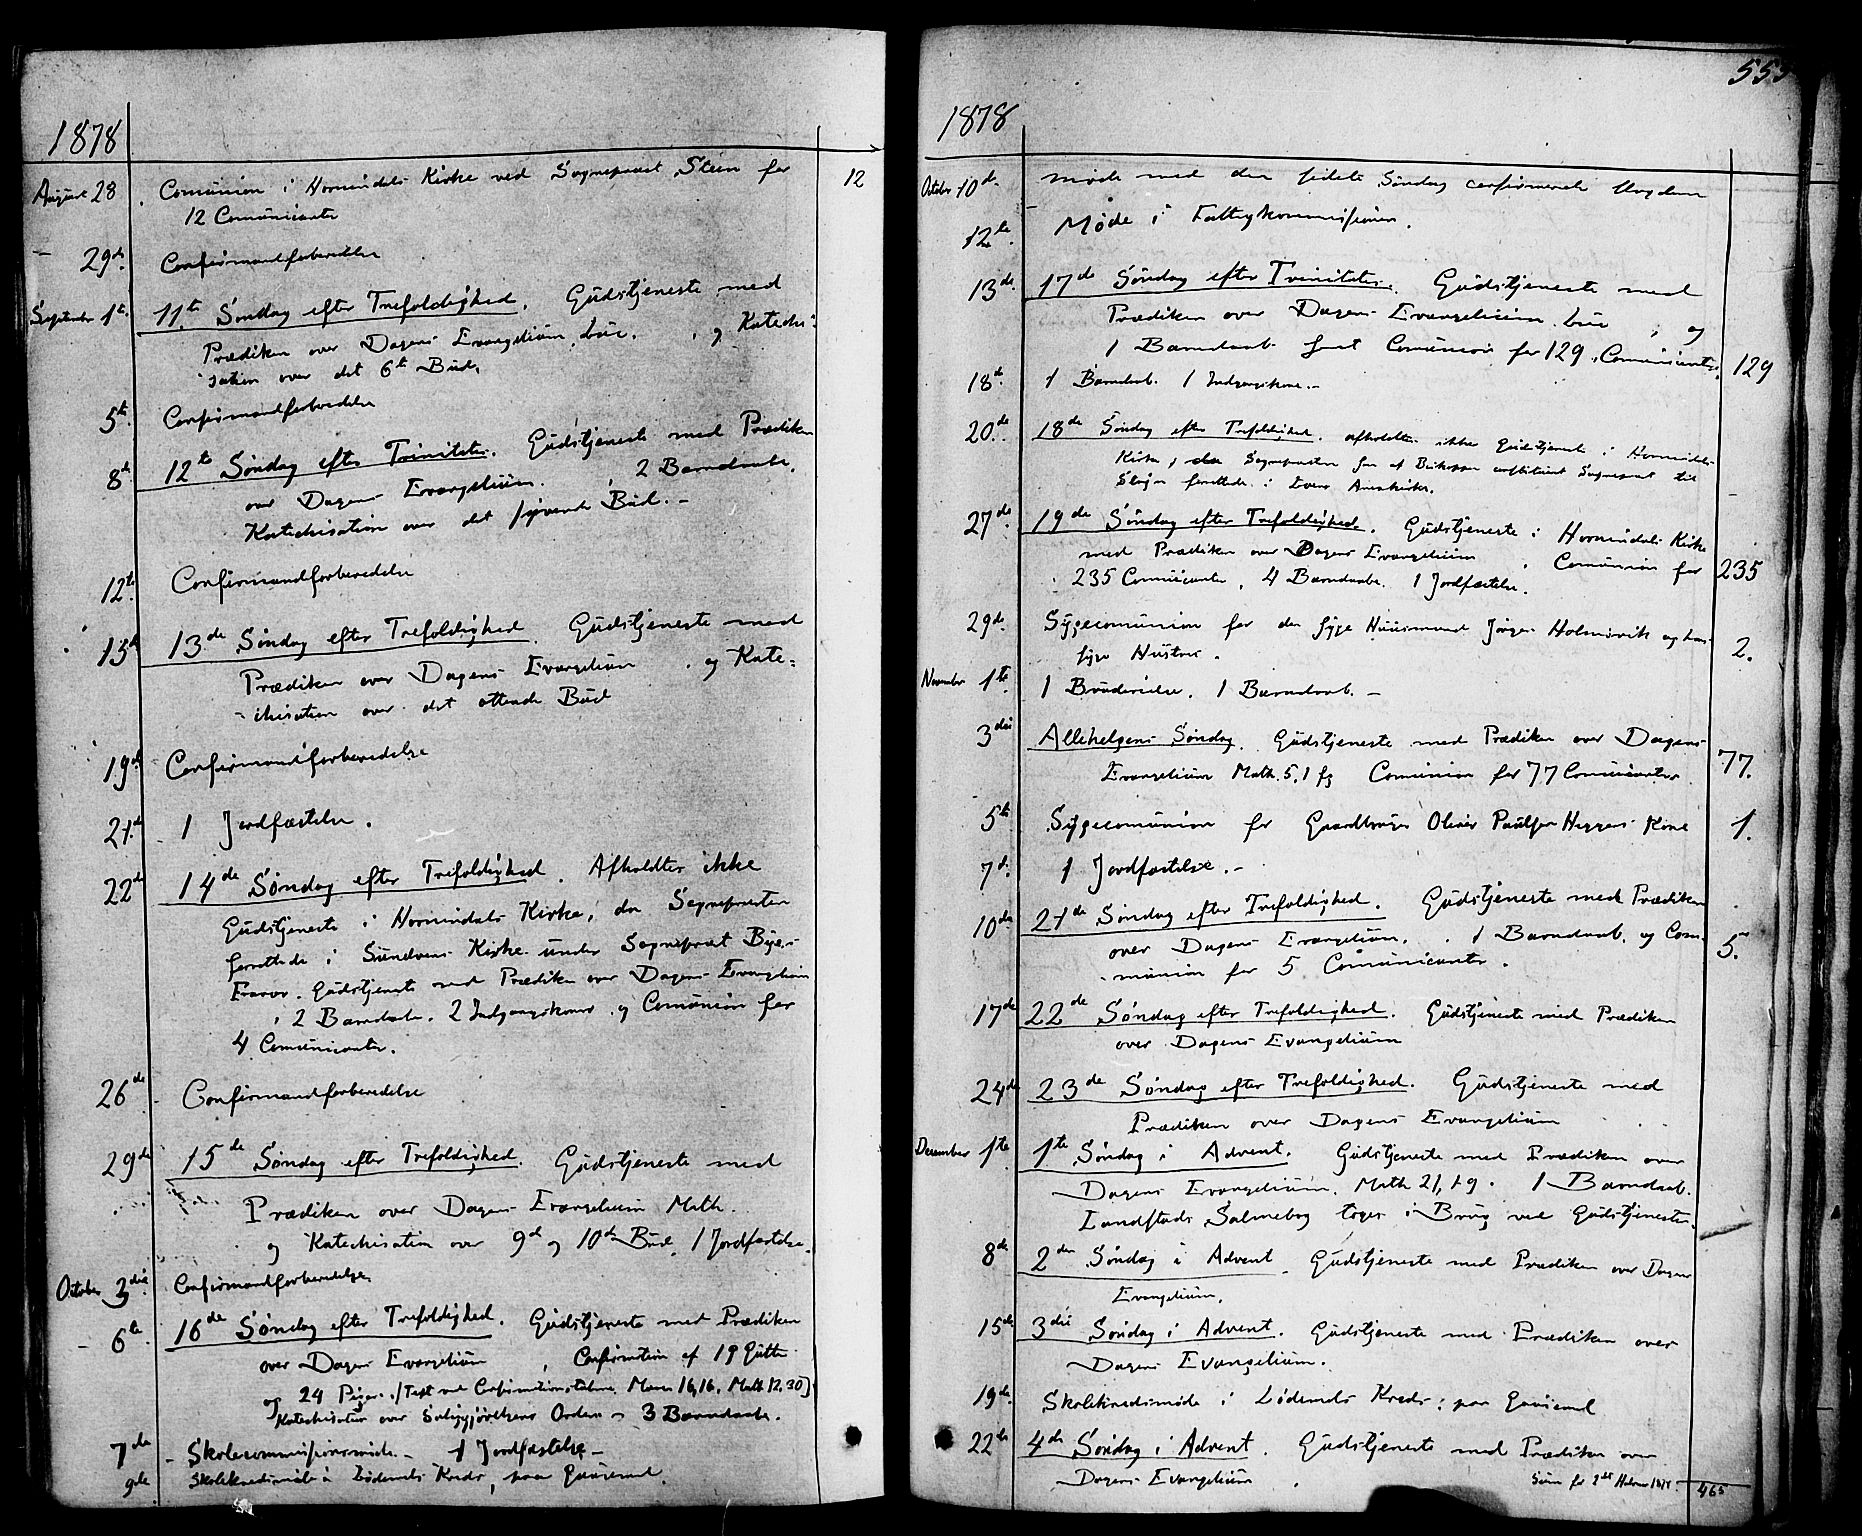 1878
August 28 Comunion i Hornindals Kirke ved Sognepræst Steen for 12
12 Comunicanter
29de Confirmandforberedelse
September 1te 11te Søndag efter Trefoldighed. Gudstjeneste med
Prædiken over Dagens Evangelium Luc. og Katechi-
sation over det 6te Bud.
5te Confirmandforberedelse
8de 12te Søndag efter Trinitatis. Gudstjeneste med Prædiken
over Dagens Evangelium. 2 Barndaabe.
Katechisation over det syvende Bud. -
12te Confirmandforberedelse
15de 13de Søndag efter Trefoldighed. Gudstjeneste med
Prædiken over Dagens Evangelium og Kate-
chisation over det ottende Bud
19de Confirmandforberedelse
21de 1 Jordfæstelse.
22de 14de Søndag efter Trefoldighed. Afholdtes ikke
Gudstjeneste i Hornindals Kirke, da Sognepræsten
forrettede i Kirke under Sognepræst
Gudstjeneste med Prædiken over Dagens Evangelium
, 2 Barndaabe. 2 Indgangskoner og Comunion for
4 Comunicanter.
26de Confirmandforberedelse
29de 15de Søndag efter Trefoldighed. Gudstjeneste med
Prædiken over Dagens Evangelium Math.
og Katechisation over 9de og 10de Bud. 1 Jordfæstelse.
October 3die Confirmandforberedelse
6te 16de Søndag efter Trefoldighed. Gudstjeneste med Prædiken
over Dagens Evangelium, Confirmation af 19 Gutter
og 24 Piger. (Text ved Confirmationstalen, Marc. 16,16. Math. 12,30)
Katechisation over Saliggjørelsens Orden - 3 Barndaabe.
7de - Skolecommissionsmøde. - 1 Jordfæstelse -
9de Skolekredsmøde i Lødemels Kreds, paa
555
1878
October 10de møde med den sidste Søndag confirmerede Ungdom
12te Møde i Fattigkommissionen.
13de 17de Søndag efter Trinitatis. Gudstjeneste med
Prædiken over Dagens Evangelium Luc , og
1 Barndaab samt Comunion for 129 Comunicanter. 129
18de 1 Barndaab. 1 Indgangskone. -
20de 18de Søndag efter Trefoldighed. afholdtes ikke Gudstjeneste i Hornindals
Kirke, da Sognepræsten som af Biskoppen constitueret Sognepræst til
forrettede i
27de 19de Søndag efter Trefoldighed. Gudstjeneste i Hornindals Kirke
med Prædiken over Dagens Evangelium , Comunion for
235 Comunicanter, 4 Barndaabe. 1 Jordfæstelse. 235
29de Sygecomunion for den syge Huusmand Holmevik og hans
syge Hustru. 2.
November 1te 1 Brudevielse. 1 Barndaab. -
3die Allehelgens Søndag. Gudstjeneste med Prædiken over Dagens
Evangelium Math. 5,1 fg Comunion for 77 Comunicanter. 77.
5te Sygecomunion for Gaardbruger Paulsen Kone 1.
7de 1 Jordfæstelse. -
10de 21de Søndag efter Trefoldighed. Gudstjeneste med Prædiken
over Dagens Evangelium, 1 Barndaab, og Com-
munion for 5 Comunicanter. 5.
17de 22de Søndag efter Trefoldighed. Gudstjeneste med Prædiken
over Dagens Evangelium
24de 23de Søndag efter Trefoldighed. Gudstjeneste med
Prædiken over Dagens Evangelium
December 1te 1te Søndag i Advent. Gudstjeneste med Prædiken over
Dagens Evangelium. Math 21,1-9. 1 Barndaab.
Landstads Salmebog toges i Brug ved Gudstjenesten.
8de 2den Søndag i Advent. Gudstjeneste med Prædiken over Dagens
Evangelium.
15de 3die Søndag i Advent. Gudstjeneste med Prædiken over
Dagens Evangelium.
19de Skolekredsmøde i Lødemels Kreds, paa
22de 4de Søndag i Advent. Gudstjeneste med Prædiken over
Dagens Evangelium
Sum for 2det Halvaar 1878 465